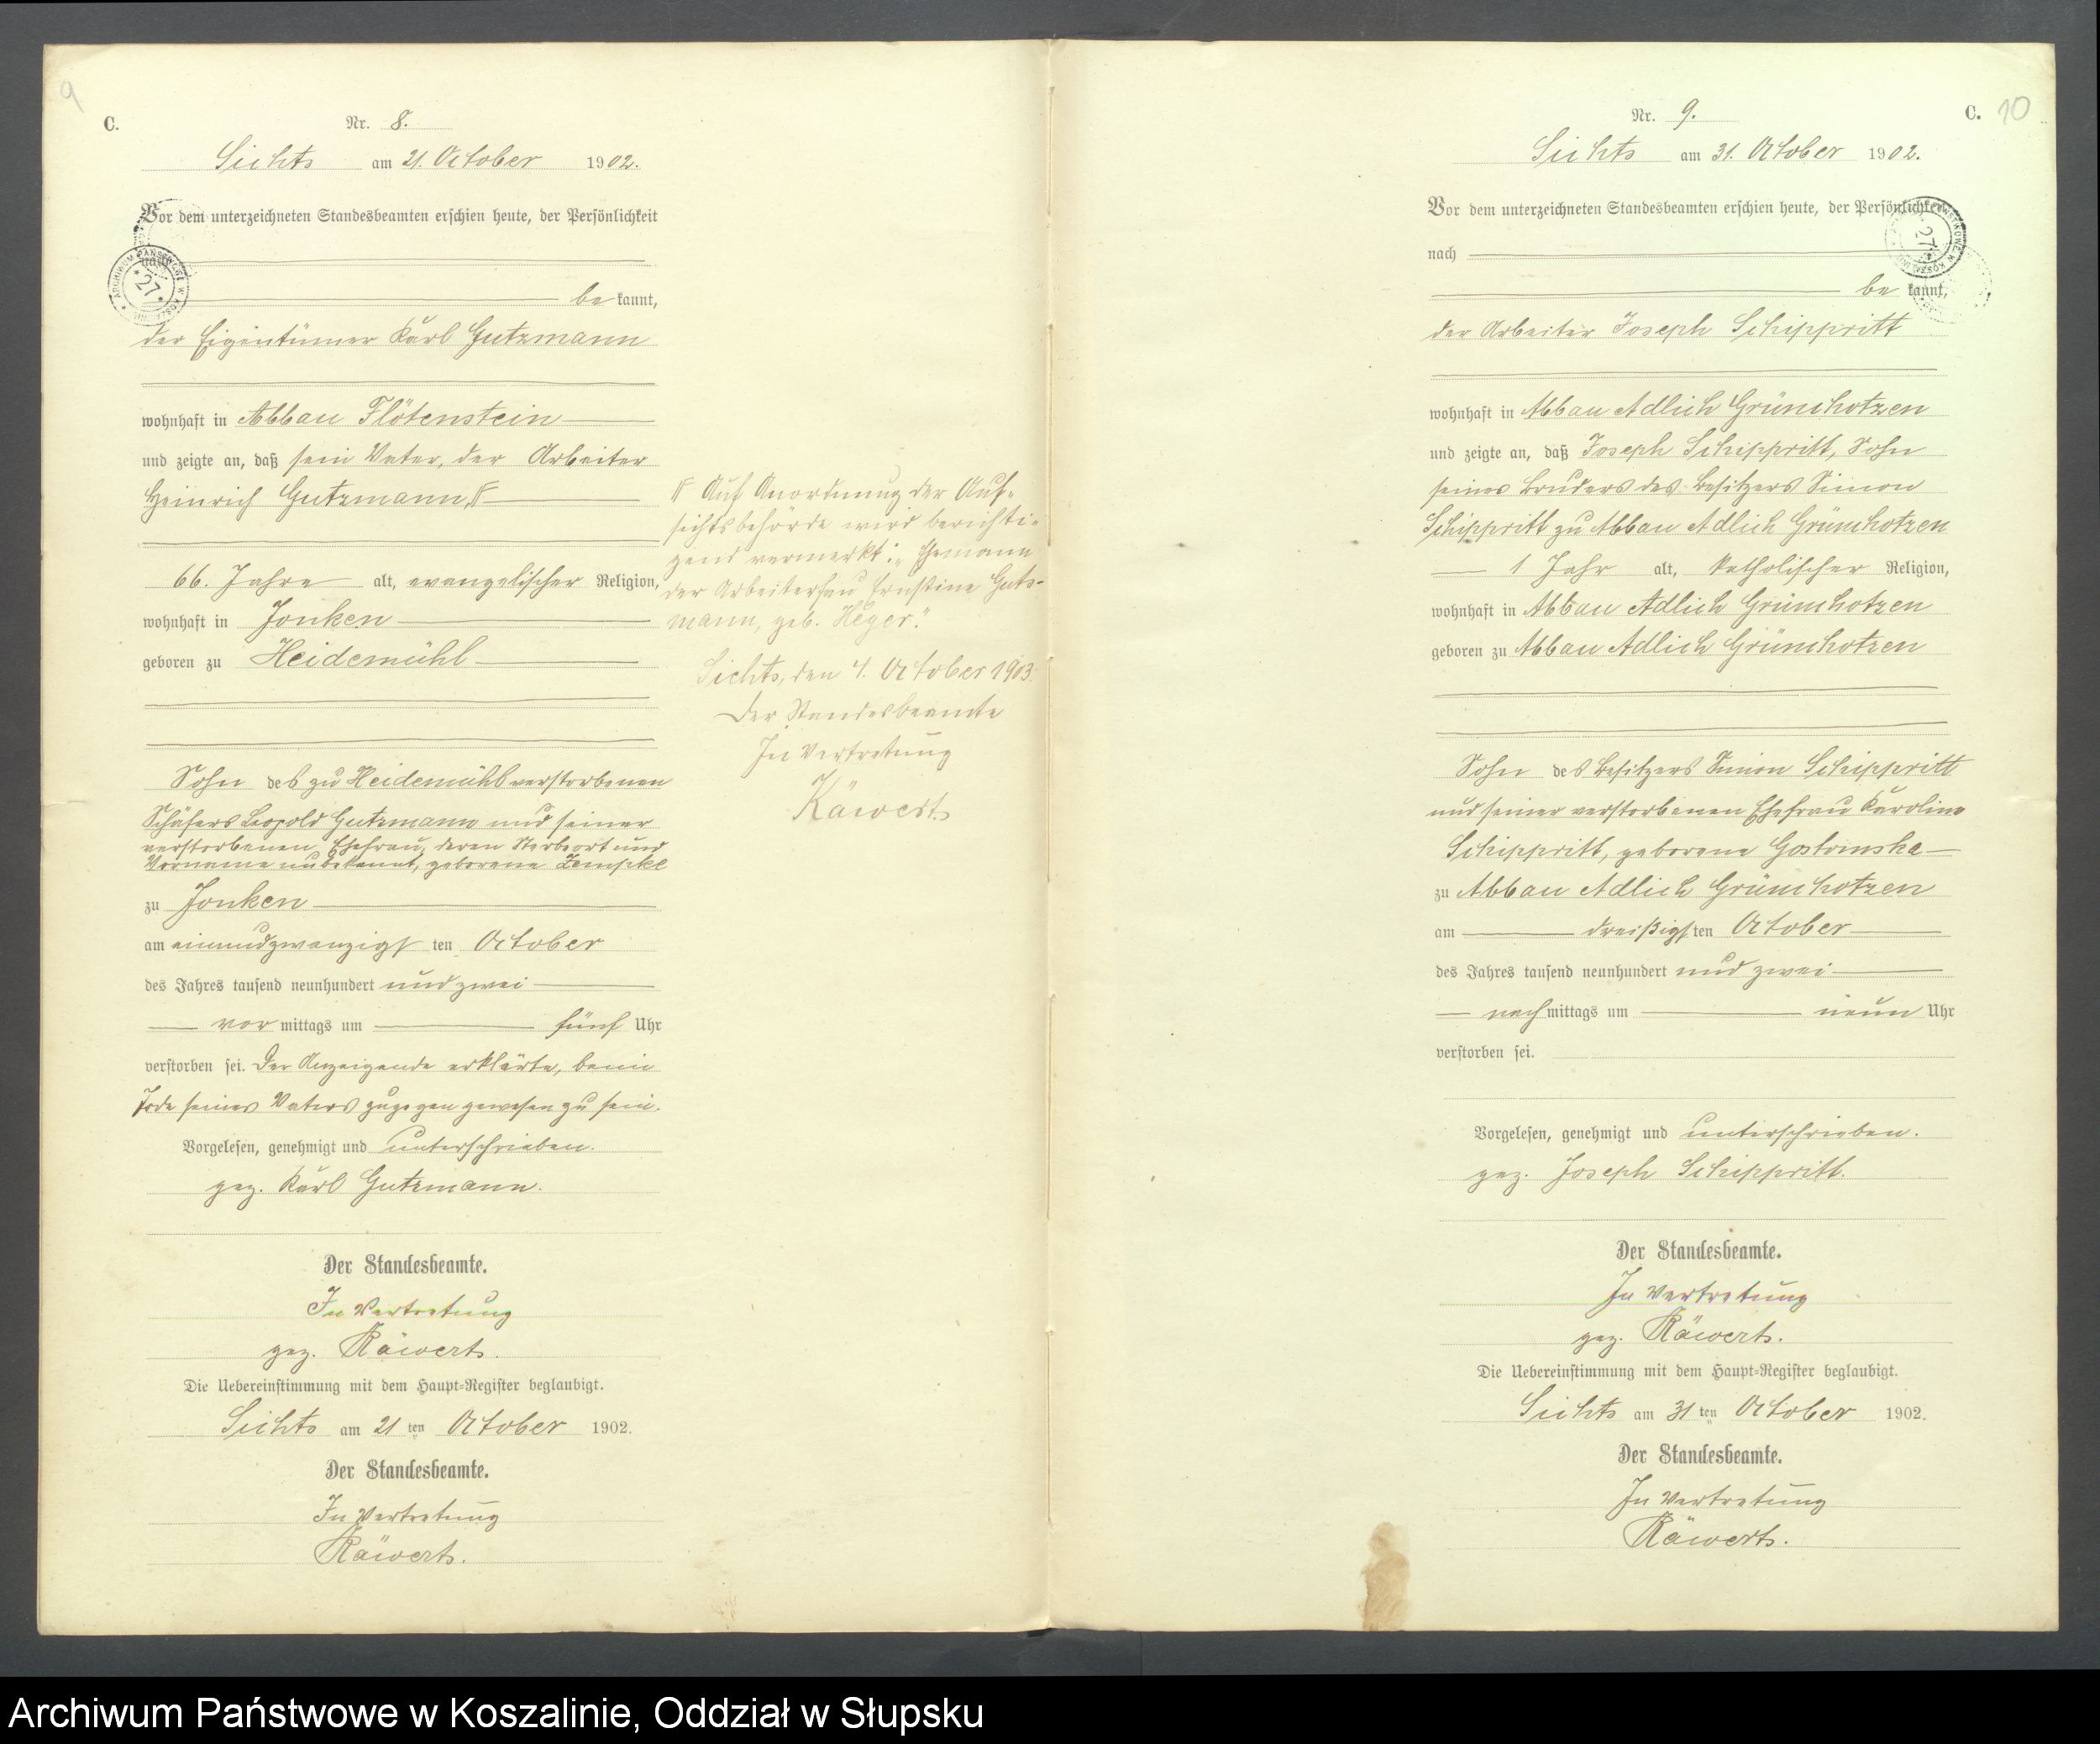 9
C.
Nr. 8.
Sichts am 21. October 1902.
Vor dem unterzeichneten Standesbeamten erschien heute, der Persönlichkeit
nach
bekannt,
der Eigentümer Karl Gutzmann
wohnhaft in Abbau Flötenstein
und zeigte an, daß sein Vater, der Arbeiter
Heinrich Gutzmann,
66. Jahre alt, evangelischer Religion,
wohnhaft in Jonken
geboren zu Heidemühl
Sohn des zu Heidemühl verstorbenen
Schäfers Leopold Gutzmann und seiner
verstorbenen Ehefrau, deren Sterbeort und
Vorname unbekannt, geborene Lempke
zu Jonken
am einundzwanzigsten October
des Jahres tausend neunhundert und zwei
vormittags um fünf Uhr
verstorben sei. Der Anzeigende erklärte, beim
Tode seines Vaters zugegen gewesen zu sein.
Vorgelesen, genehmigt und unterschrieben.
gez. Karl Gutzmann.
Der Standesbeamte.
In Vertretung
gez. Käwert.
Die Uebereinstimmung mit dem Haupt-Register beglaubigt.
Sichts am 21 ten October 1902.
Der Standesbeamte.
In Vertretung
Käwert.
Auf Anordnung der Auf-
sichtsbehörde wird berichti-
gend vermerkt: „Ehemann
der Arbeiterfrau Ernstine Guts-
mann, geb. Heyer."
Sichts, den 4. October 1903.
Der Standesbeamte
In Vertretung
Käwert.
C. 10
Nr. 9.
Sichts am 31. October 1902.
Vor dem unterzeichneten Standesbeamten erschien heute, der Persönlichkeit
nach
bekannt,
der Arbeiter Joseph Schippritt
wohnhaft in Abbau Adlich Grünchotzen
und zeigte an, daß Joseph Schippritt, Sohn
seines Bruders des Besitzers Simon
Schippritt zu Abbau Adlich Grünchotzen
1 Jahr alt, katholischer Religion,
wohnhaft in Abbau Adlich Grünchotzen
geboren zu Abbau Adlich Grünchotzen
Sohn des Besitzers Simon Schippritt
und seiner verstorbenen Ehefrau Karoline
Schippritt, geborene Gostomska
zu Abbau Adlich Grünchotzen
am dreißigsten October
des Jahres tausend neunhundert und zwei
nachmittags um neun Uhr
verstorben sei.
Vorgelesen, genehmigt und unterschrieben.
gez. Joseph Schippritt.
Der Standesbeamte.
In Vertretung
gez. Käwert.
Die Uebereinstimmung mit dem Haupt-Register beglaubigt.
Sichts am 31 ten October 1902.
Der Standesbeamte.
In Vertretung
Käwert.
Archiwum Państwowe w Koszalinie, Oddział w Słupsku